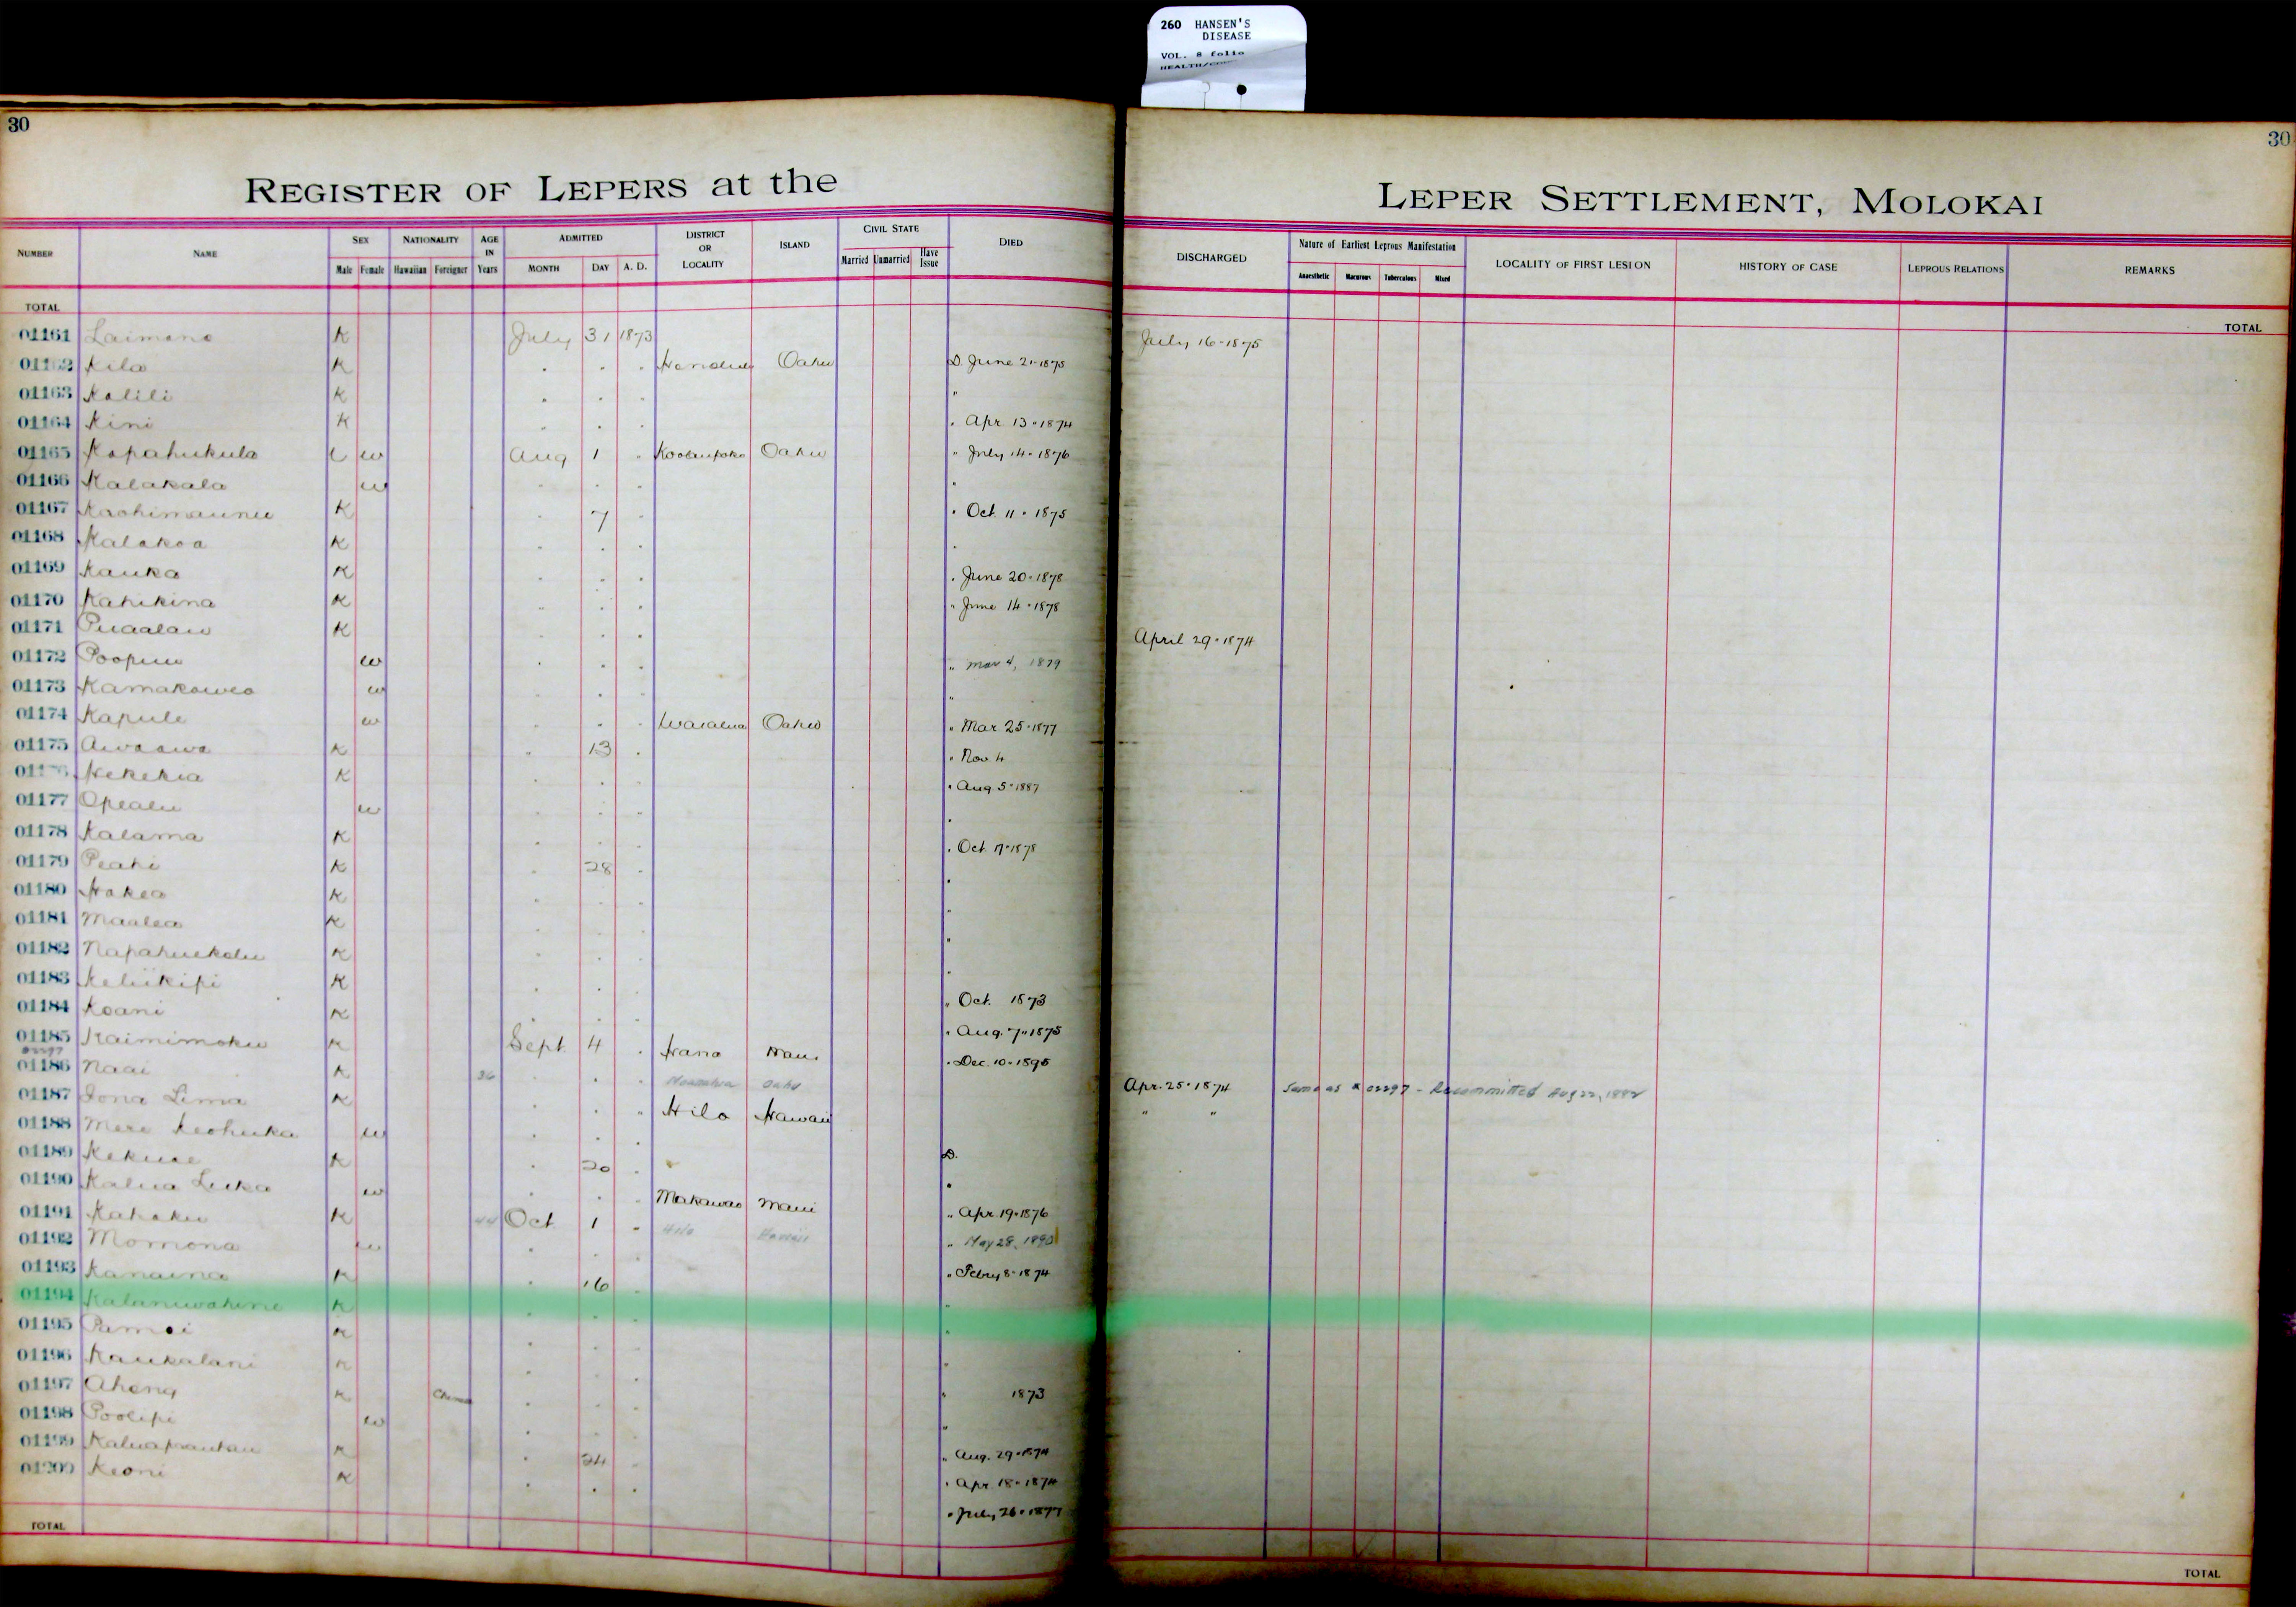 260 HANSEN'S
DISEASE
VOL. 8 folio
30
30
REGISTER OF LEPERS at the
LEPER SETTLEMENT, MOLOKAI
NUMBER NAME SEX Male Female NATIONALITY Hawaiian Foreigner AGE IN Years ADMITTED MONTH DAY A. D. DISTRICT OR LOCALITY ISLAND CIVIL STATE Married Unmarried Have Issue DIED
DISCHARGED Nature of Earliest Leprous Manifestation Anaesthetic Macurous Tuberculous Mixed LOCALITY OF FIRST LESION HISTORY OF CASE LEPROUS RELATIONS REMARKS
TOTAL
TOTAL
01161 Laimana K July 31 1873 July 16-1875
01162 Kila K " " " Honolulu Oahu D. June 21-1875
01163 Kalili K " " " "
01164 Kini K " " " " Apr. 13-1874
01165 Kapahukula w Aug 1 " Koolaupoko Oahu " July 14-1876
01166 Kalakala w " " " "
01167 Kaohimaunu K " 7 " " Oct. 11-1875
01168 Kalakoa K " " " "
01169 Kauka K " " " " June 20-1878
01170 Kahikina K " " " " June 14-1878
01171 Puaalau K " " " April 29-1874
01172 Poopuu w " " " " Mar 4, 1879
01173 Kamakawea w " " " "
01174 Kapule w " " " Waialua Oahu " Mar. 25-1877
01175 Awaawa K " 13 " " Nov. 4
Kekekia K " " " " Aug 5-1887
01177 Opealu w " " " "
01178 Kalama K " " " " Oct. 17-1878
01179 Peahi K " 28 " "
01180 Hakea K " " " "
01181 Maalea K " " " "
01182 Napahuekolu K " " " "
01183 Keliikipi K " " " " Oct. 1873
01184 Koani K " " " " Aug. 7-1875
01185 Kaimimoku K Sept. 4 " Hana Maui " Dec. 10-1895
01186 Naai K 36 " " Oahu Apr. 25-1874 Same as # 02297 - Recommitted Aug 22, 1882
01187 Iona Lima K " " " Hilo Hawaii " "
01188 Mere Keohuka w " " " D.
01189 Kekuae K " 20 " "
01190 Kalua Luka w " " " Makawao Maui " Apr. 19-1876
01191 Kahaku K 44 Oct 1 " Hilo Hawaii " May 28, 1890
01192 Momona w " " " Febry 8-1874
01193 Kanaina K " 16 " "
01194 Kalaniwahine K " " " "
01195 K " " " "
01196 Kaukalani K " " " "
01197 Aheng K China " " " 1873
01198 Poolipi w " " " "
01199 K " 24 " " Aug. 29-1874
01200 Keoni K " " " " Apr. 18-1874
" July 26-1877
TOTAL
TOTAL